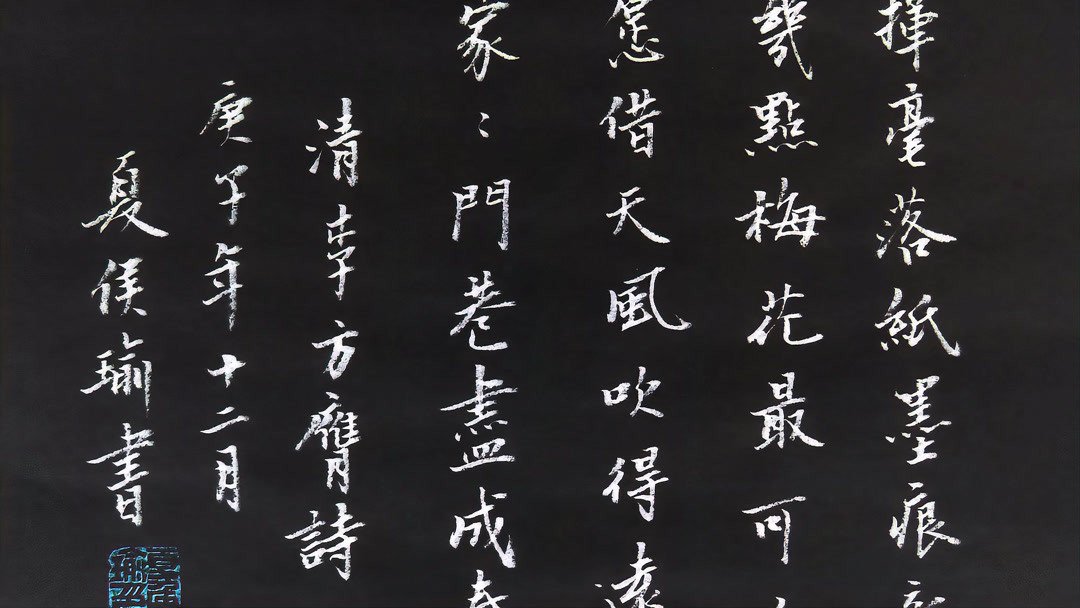 揮毫落紙墨痕
幾點梅花最可
借天風吹得遠
家〻門巷盡成春
清李方膺詩
庚子年十二月
夏侯瑜書